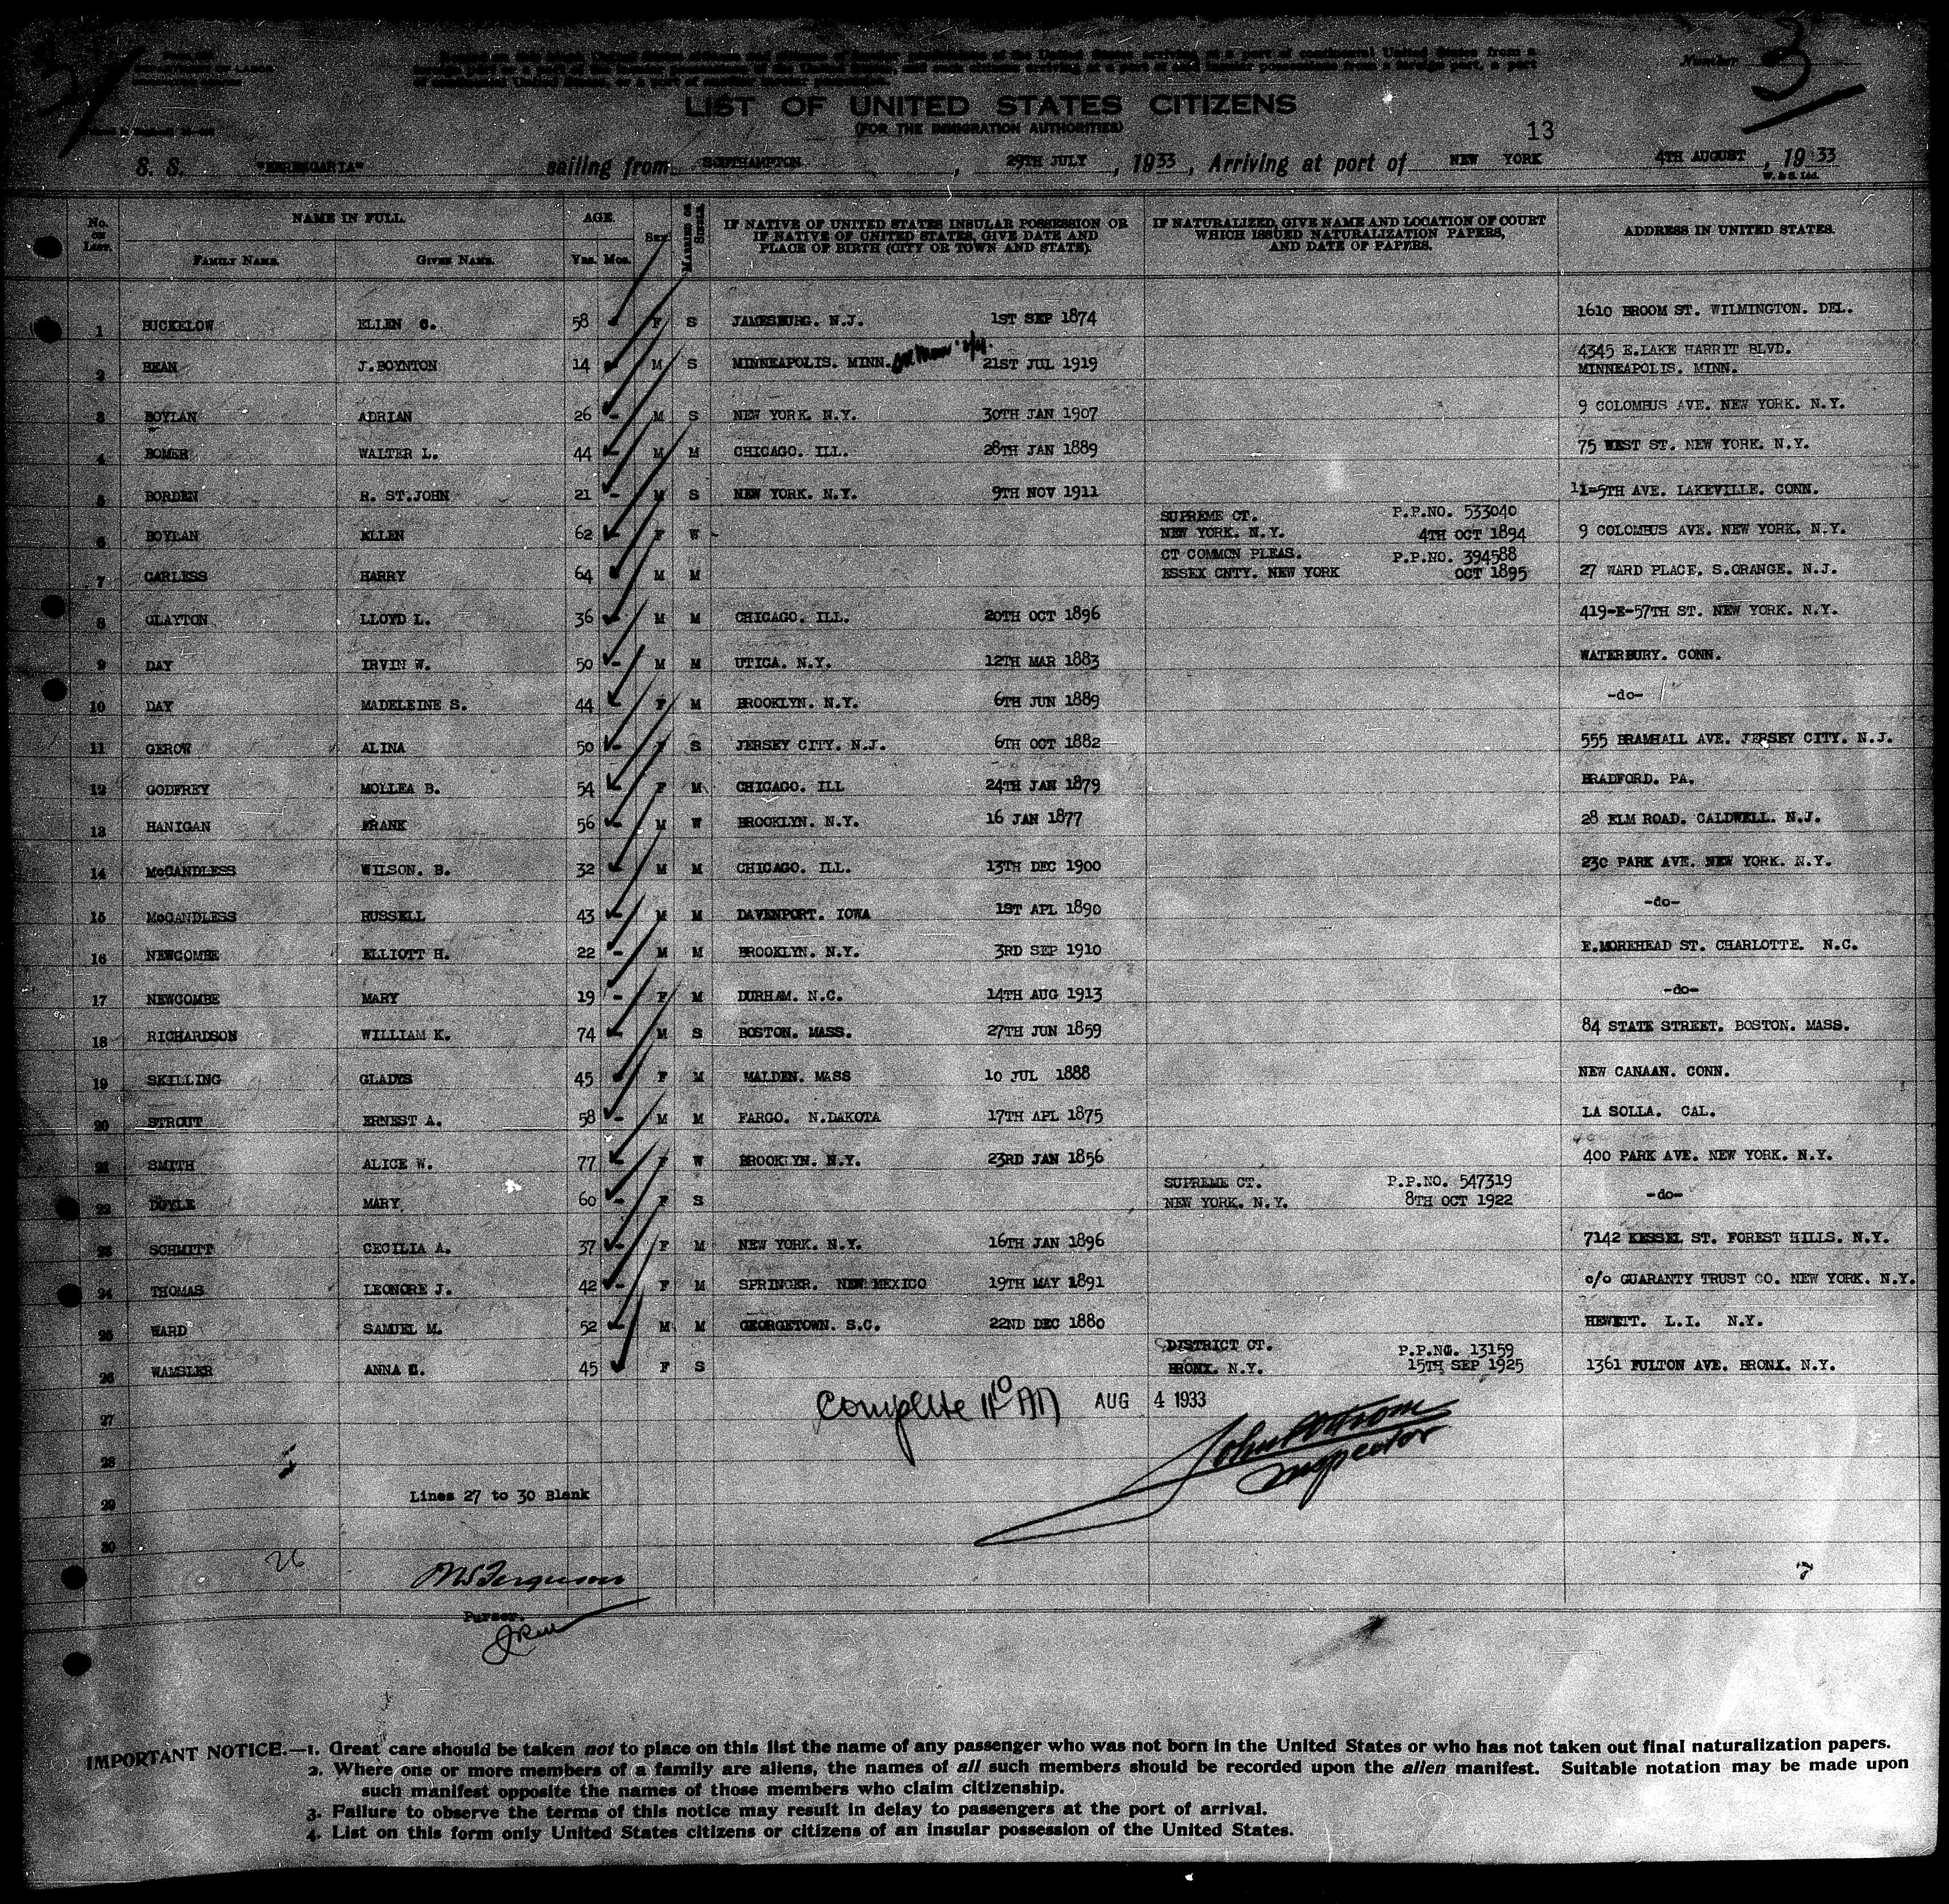 Number 3
LIST OF UNITED STATES CITIZENS
(FOR THE IMMIGRATION AUTHORITIES)
13
S. S. "BERENGARIA" sailing from SOUTHAMPTON, 29TH JULY, 1933, Arriving at port of NEW YORK 4TH AUGUST, 1933
W. & S. Ltd.
No. on List. NAME IN FULL. AGE. Sex MARRIED OR SINGLE. IF NATIVE OF UNITED STATES INSULAR POSSESSION OR IF NATIVE OF UNITED STATES, GIVE DATE AND PLACE OF BIRTH (CITY OR TOWN AND STATE). IF NATURALIZED, GIVE NAME AND LOCATION OF COURT WHICH ISSUED NATURALIZATION PAPERS, AND DATE OF PAPERS. ADDRESS IN UNITED STATES.
FAMILY NAME. GIVEN NAME. Yrs. Mos.
1 BUCKELOW ELLEN C. 58 F S JAMESBURG. N.J. 1ST SEP 1874 1610 BROOM ST. WILMINGTON. DEL.
2 BEAN J.BOYNTON 14 M S MINNEAPOLIS. MINN. 21ST JUL 1919 4345 E.LAKE HARRIT BLVD. MINNEAPOLIS. MINN.
3 BOYLAN ADRIAN 26 - M S NEW YORK. N.Y. 30TH JAN 1907 9 COLOMBUS AVE. NEW YORK. N.Y.
4 BOMER WALTER L. 44 M M CHICAGO. ILL. 28TH JAN 1889 75 WEST ST. NEW YORK. N.Y.
5 BORDEN R. ST.JOHN 21 - M S NEW YORK. N.Y. 9TH NOV 1911 11-5TH AVE. LAKEVILLE. CONN.
6 BOYLAN ELLEN 62 F W SUPREME CT. NEW YORK. N.Y. P.P.NO. 533040 4TH OCT 1894 9 COLOMBUS AVE. NEW YORK. N.Y.
7 CARLESS HARRY 64 M M CT COMMON PLEAS. ESSEX CNTY. NEW YORK P.P.NO. 394588 OCT 1895 27 WARD PLACE. S.ORANGE. N.J.
8 CLAYTON LLOYD L. 36 M M CHICAGO. ILL. 20TH OCT 1896 419-E-57TH ST. NEW YORK. N.Y.
9 DAY IRVIN W. 50 - M M UTICA. N.Y. 12TH MAR 1883 WATERBURY. CONN.
10 DAY MADELEINE S. 44 F M BROOKLYN. N.Y. 6TH JUN 1889 -do-
11 GEROW ALINA 50 - F S JERSEY CITY. N.J. 6TH OCT 1882 555 BRAMHALL AVE. JERSEY CITY. N.J.
12 GODFREY MOLLEA B. 54 F M CHICAGO. ILL 24TH JAN 1879 BRADFORD. PA.
13 HANIGAN FRANK 56 - M W BROOKLYN. N.Y. 16 JAN 1877 28 ELM ROAD. CALDWELL. N.J.
14 McCANDLESS WILSON. B. 32 M M CHICAGO. ILL. 13TH DEC 1900 230 PARK AVE. NEW YORK. N.Y.
15 McCANDLESS RUSSELL 43 M M DAVENPORT. IOWA 1ST APL 1890 -do-
16 NEWCOMBE ELLIOTT H. 22 - M M BROOKLYN. N.Y. 3RD SEP 1910 E.MOREHEAD ST. CHARLOTTE. N.C.
17 NEWCOMBE MARY 19 - F M DURHAM. N.C. 14TH AUG 1913 -do-
18 RICHARDSON WILLIAM K. 74 M S BOSTON. MASS. 27TH JUN 1859 84 STATE STREET. BOSTON. MASS.
19 SKILLING GLADYS 45 F M MALDEN. MASS 10 JUL 1888 NEW CANAAN. CONN.
20 STROUT ERNEST A. 58 - M M FARGO. N.DAKOTA 17TH APL 1875 LA SOLLA. CAL.
21 SMITH ALICE W. 77 F W BROOKLYN. N.Y. 23RD JAN 1856 400 PARK AVE. NEW YORK. N.Y.
22 DOYLE MARY 60 - F S SUPREME CT. NEW YORK. N.Y. P.P.NO. 547319 8TH OCT 1922 -do-
23 SCHMITT CECILIA A. 37 - F M NEW YORK. N.Y. 16TH JAN 1896 7142 KESSEL ST. FOREST HILLS. N.Y.
24 THOMAS LEONORE J. 42 - F M SPRINGER. NEW MEXICO 19TH MAY 1891 c/o GUARANTY TRUST CO. NEW YORK. N.Y.
25 WARD SAMUEL M. 52 M M GEORGETOWN. S.C. 22ND DEC 1880 HEWETT. L.I. N.Y.
26 WAMSLER ANNA C. 45 F S DISTRICT CT. BRONX. N.Y. P.P.NO. 13159 15TH SEP 1925 1361 FULTON AVE. BRONX. N.Y.
27 Complete AUG 4 1933
28 Inspector
29 Lines 27 to 30 Blank
30
26
Purser.
IMPORTANT NOTICE.—1. Great care should be taken not to place on this list the name of any passenger who was not born in the United States or who has not taken out final naturalization papers.
2. Where one or more members of a family are aliens, the names of all such members should be recorded upon the alien manifest. Suitable notation may be made upon
such manifest opposite the names of those members who claim citizenship.
3. Failure to observe the terms of this notice may result in delay to passengers at the port of arrival.
4. List on this form only United States citizens or citizens of an insular possession of the United States.